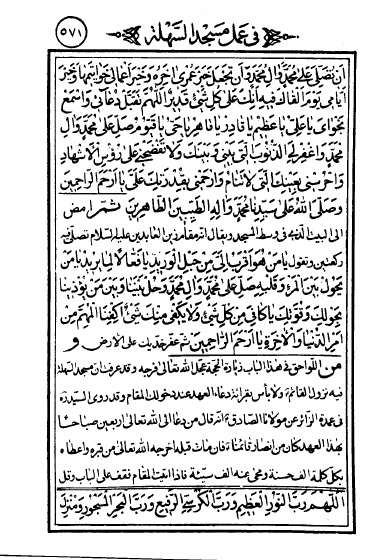 في عمل مسجد السهلة
٥٧١
ان تصلي على محمد وال محمد وان تجعل خير عمري اخره وخير اعمالي خواتيمها وخير
ايامي يوم القاك فيه انك على كل شيء قدير اللهم تقبل دعائي واسمع
نجواي يا علي يا عظيم يا قادر يا قاهر يا حي يا قيوم صل على محمد وال
محمد واغفر لي الذنوب التي بيني وبينك ولا تفضحني على رؤس الاشهاد
واحرسني بعينك التي لا تنام وارحمني بقدرتك علي يا ارحم الراحمين
وصلى الله على سيدنا محمد واله الطيبين الطاهرين ثم امض
الى البيت الذي في وسط المسجد ويقال انه مقام زين العابدين عليه السلام تصلي فيه
ركعتين وتقول يا من هو اقرب الي من حبل الوريد يا فعالا لما يريد يا من
يحول بين المرء وقلبه صل على محمد وال محمد وحل بيننا وبين من يؤذينا
بحولك وقوتك يا كافي من كل شيء ولا يكفي منه شيء اكفنا المهم من
امر الدنيا والاخرة يا ارحم الراحمين ثم عفر خديك على الارض و
من اللواحق في هذا الباب زيارة الحجة عجل الله تعالى فرجه وقد عرفت ان مسجد السهلة
فيه نزول القائم ولا باس بقراءة دعاء العهد عند دخولك المقام وقد روى السيد ره
في عدة الزائر عن مولانا الصادق انه قال من دعا الى الله تعالى اربعين صباحا
بهذا العهد كان من انصار قائمنا فان مات قبله اخرجه الله تعالى من قبره واعطاه
بكل كلمة الف حسنة ومحى عنه الف سيئة فاذا اتيت المقام فقف على الباب وقل
اللهم رب النور العظيم ورب الكرسي الرفيع ورب البحر المسجور ومنزل